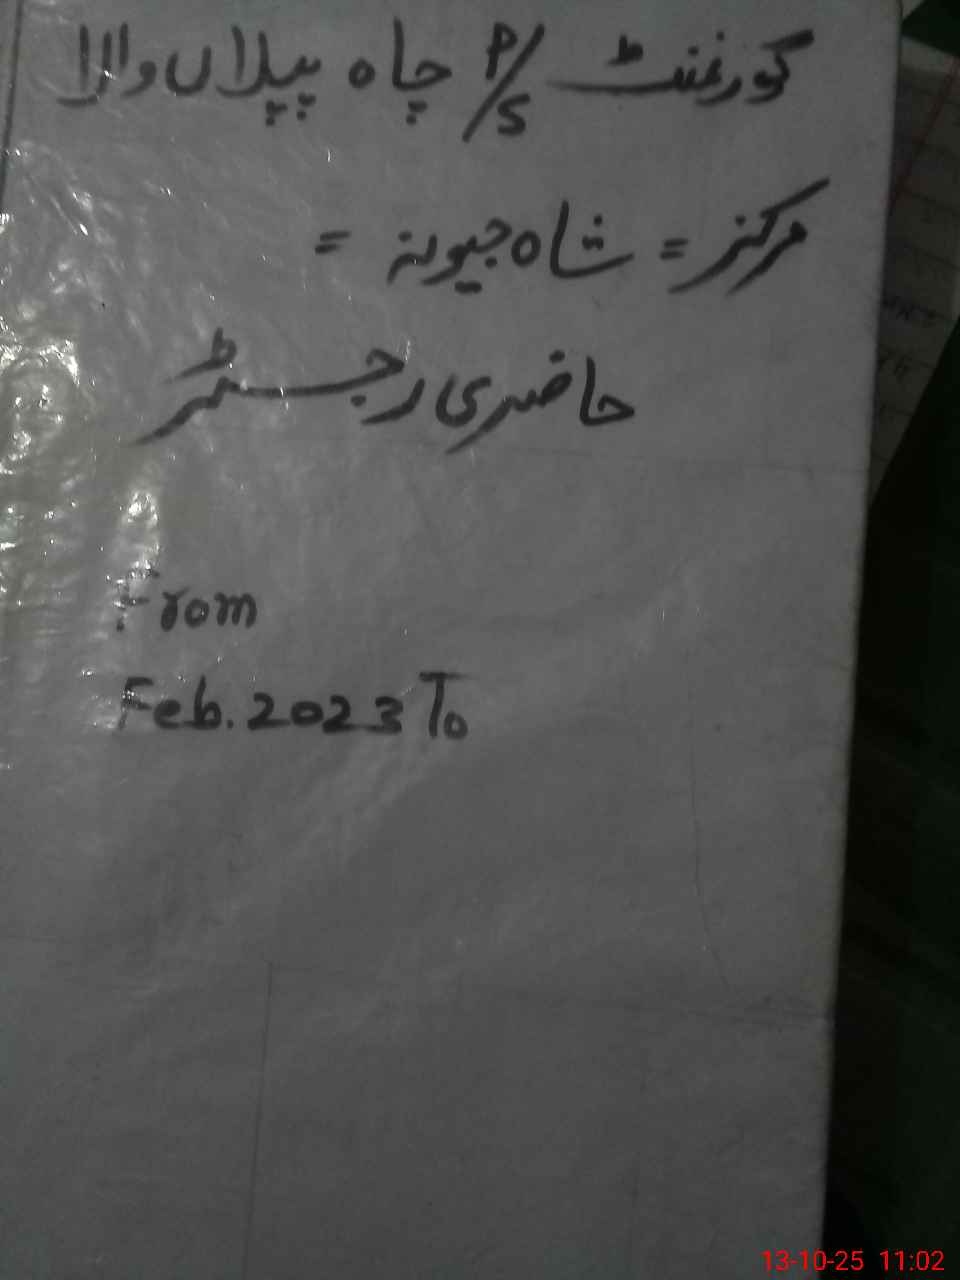 گورنمنٹ P/S چاہ پپلاں والا
مرکز = شاہ جیونہ =
حاضری رجسٹر
From
Feb. 2023 To
13-10-25 11:02